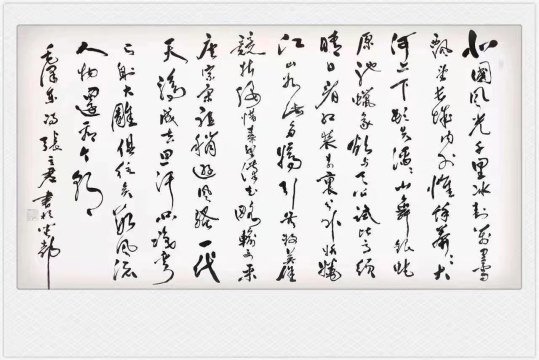 北國風光千里冰封萬里雪
飄望長城内外惟餘莽〻大
河上下頓失滔〻山舞銀蛇
原馳蠟象欲與天公試比高須
晴日看紅裝素裹分外妖嬈
江山如此多嬌引無數英雄
競折腰惜秦皇漢武略輸文采
唐宗宋祖稍遜風騷一代
天驕成吉思汗只識彎
弓射大雕俱往矣數風流
人物還看今朝
毛澤東詞張立君書於